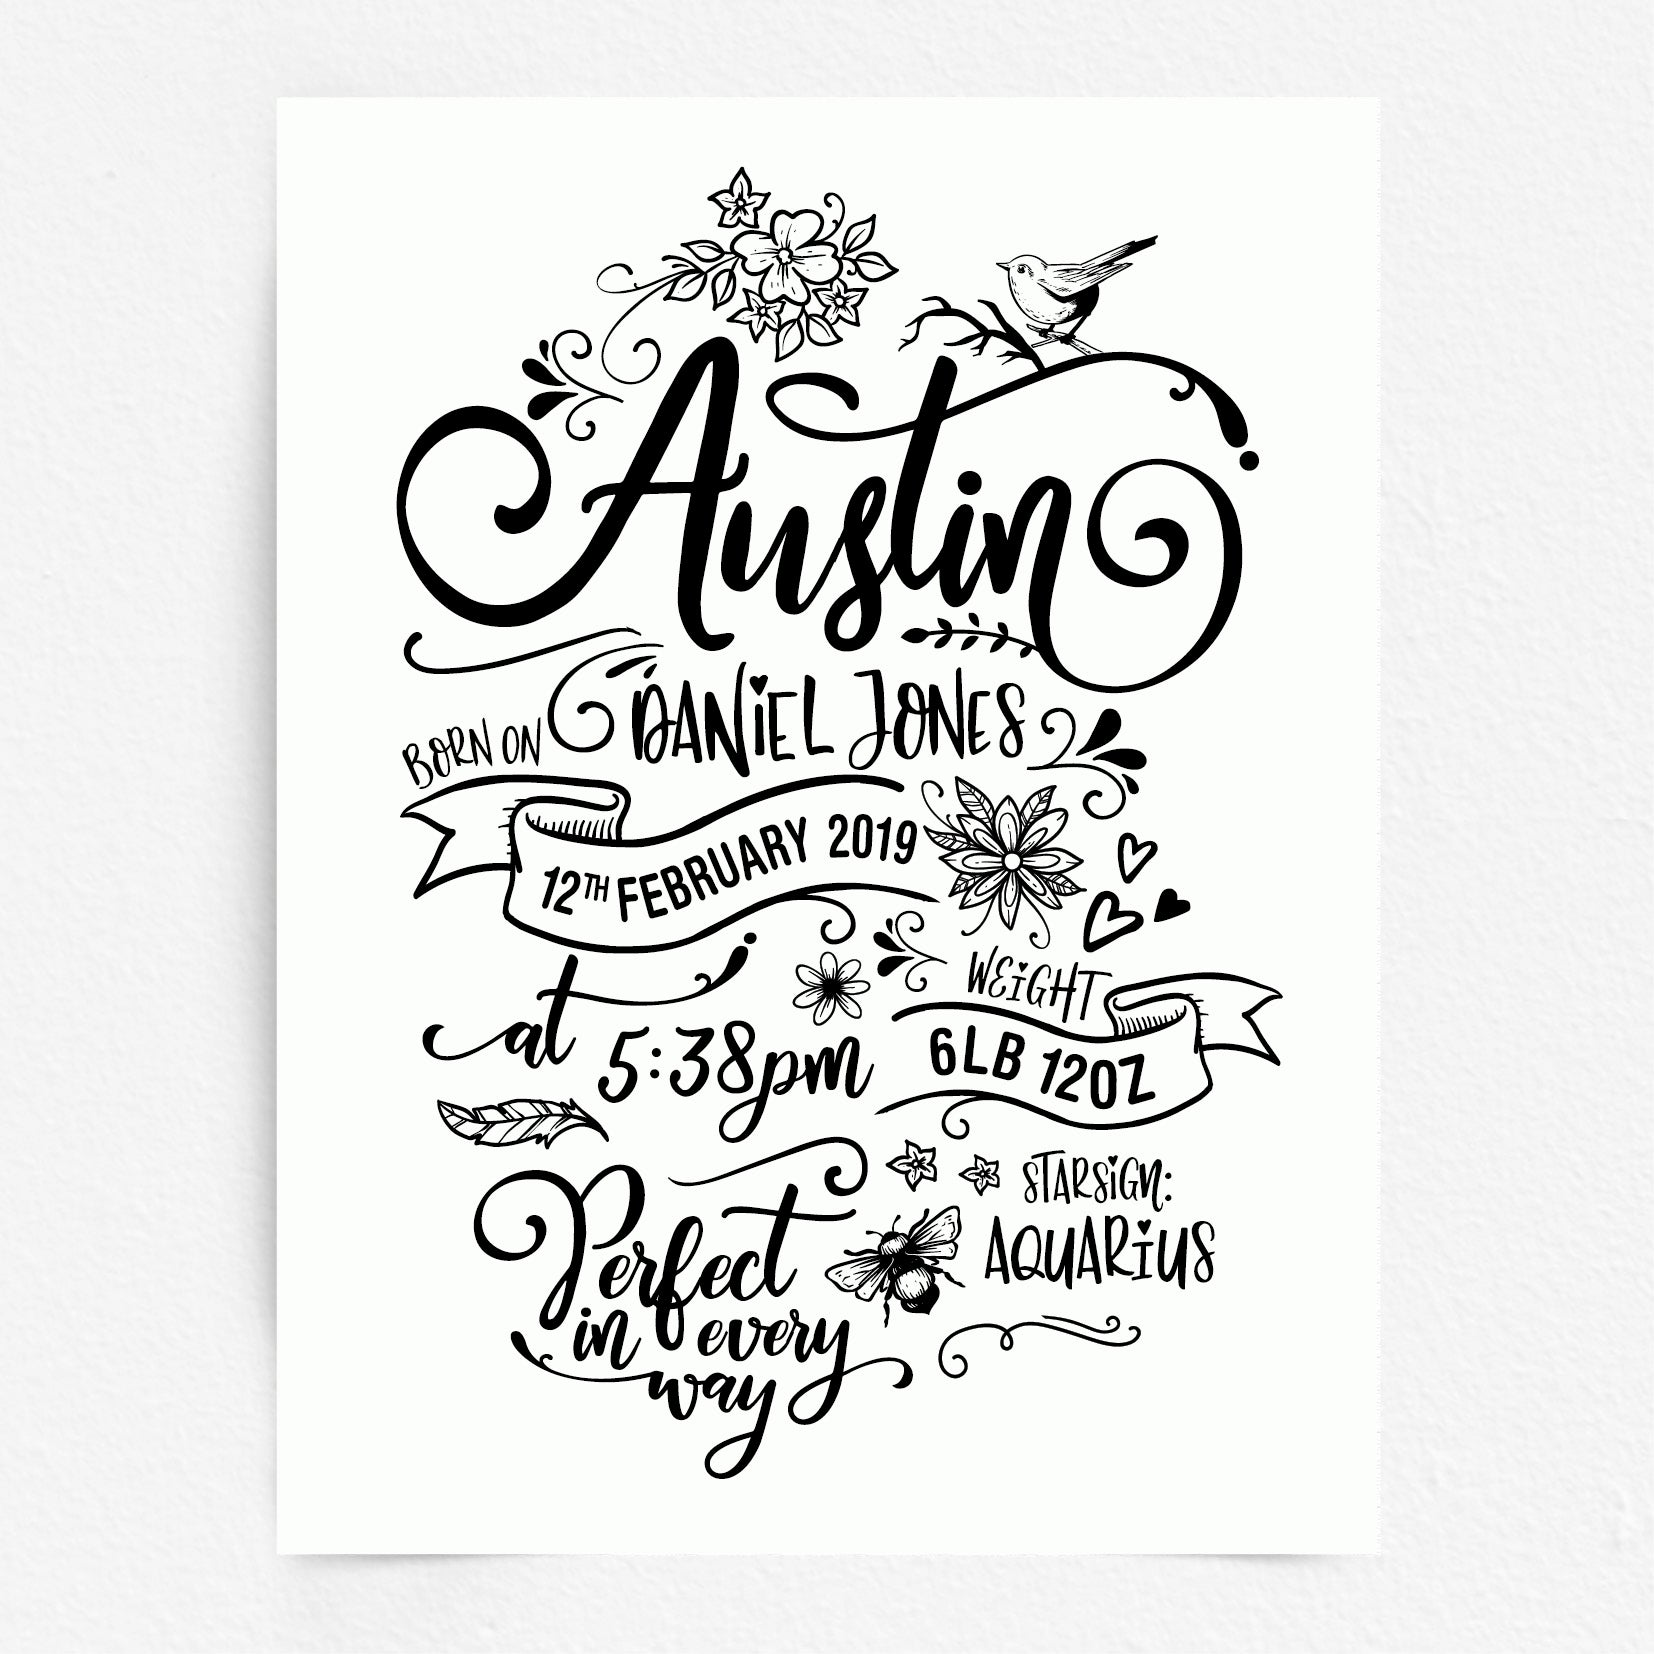 Austin
DANiEL JONES
BORN ON
12TH FEBRUARY 2019
at
5:38pm
WEiGHT
6LB 12OZ
Perfect
in every
way
STARSiGN:
AQUARiUS